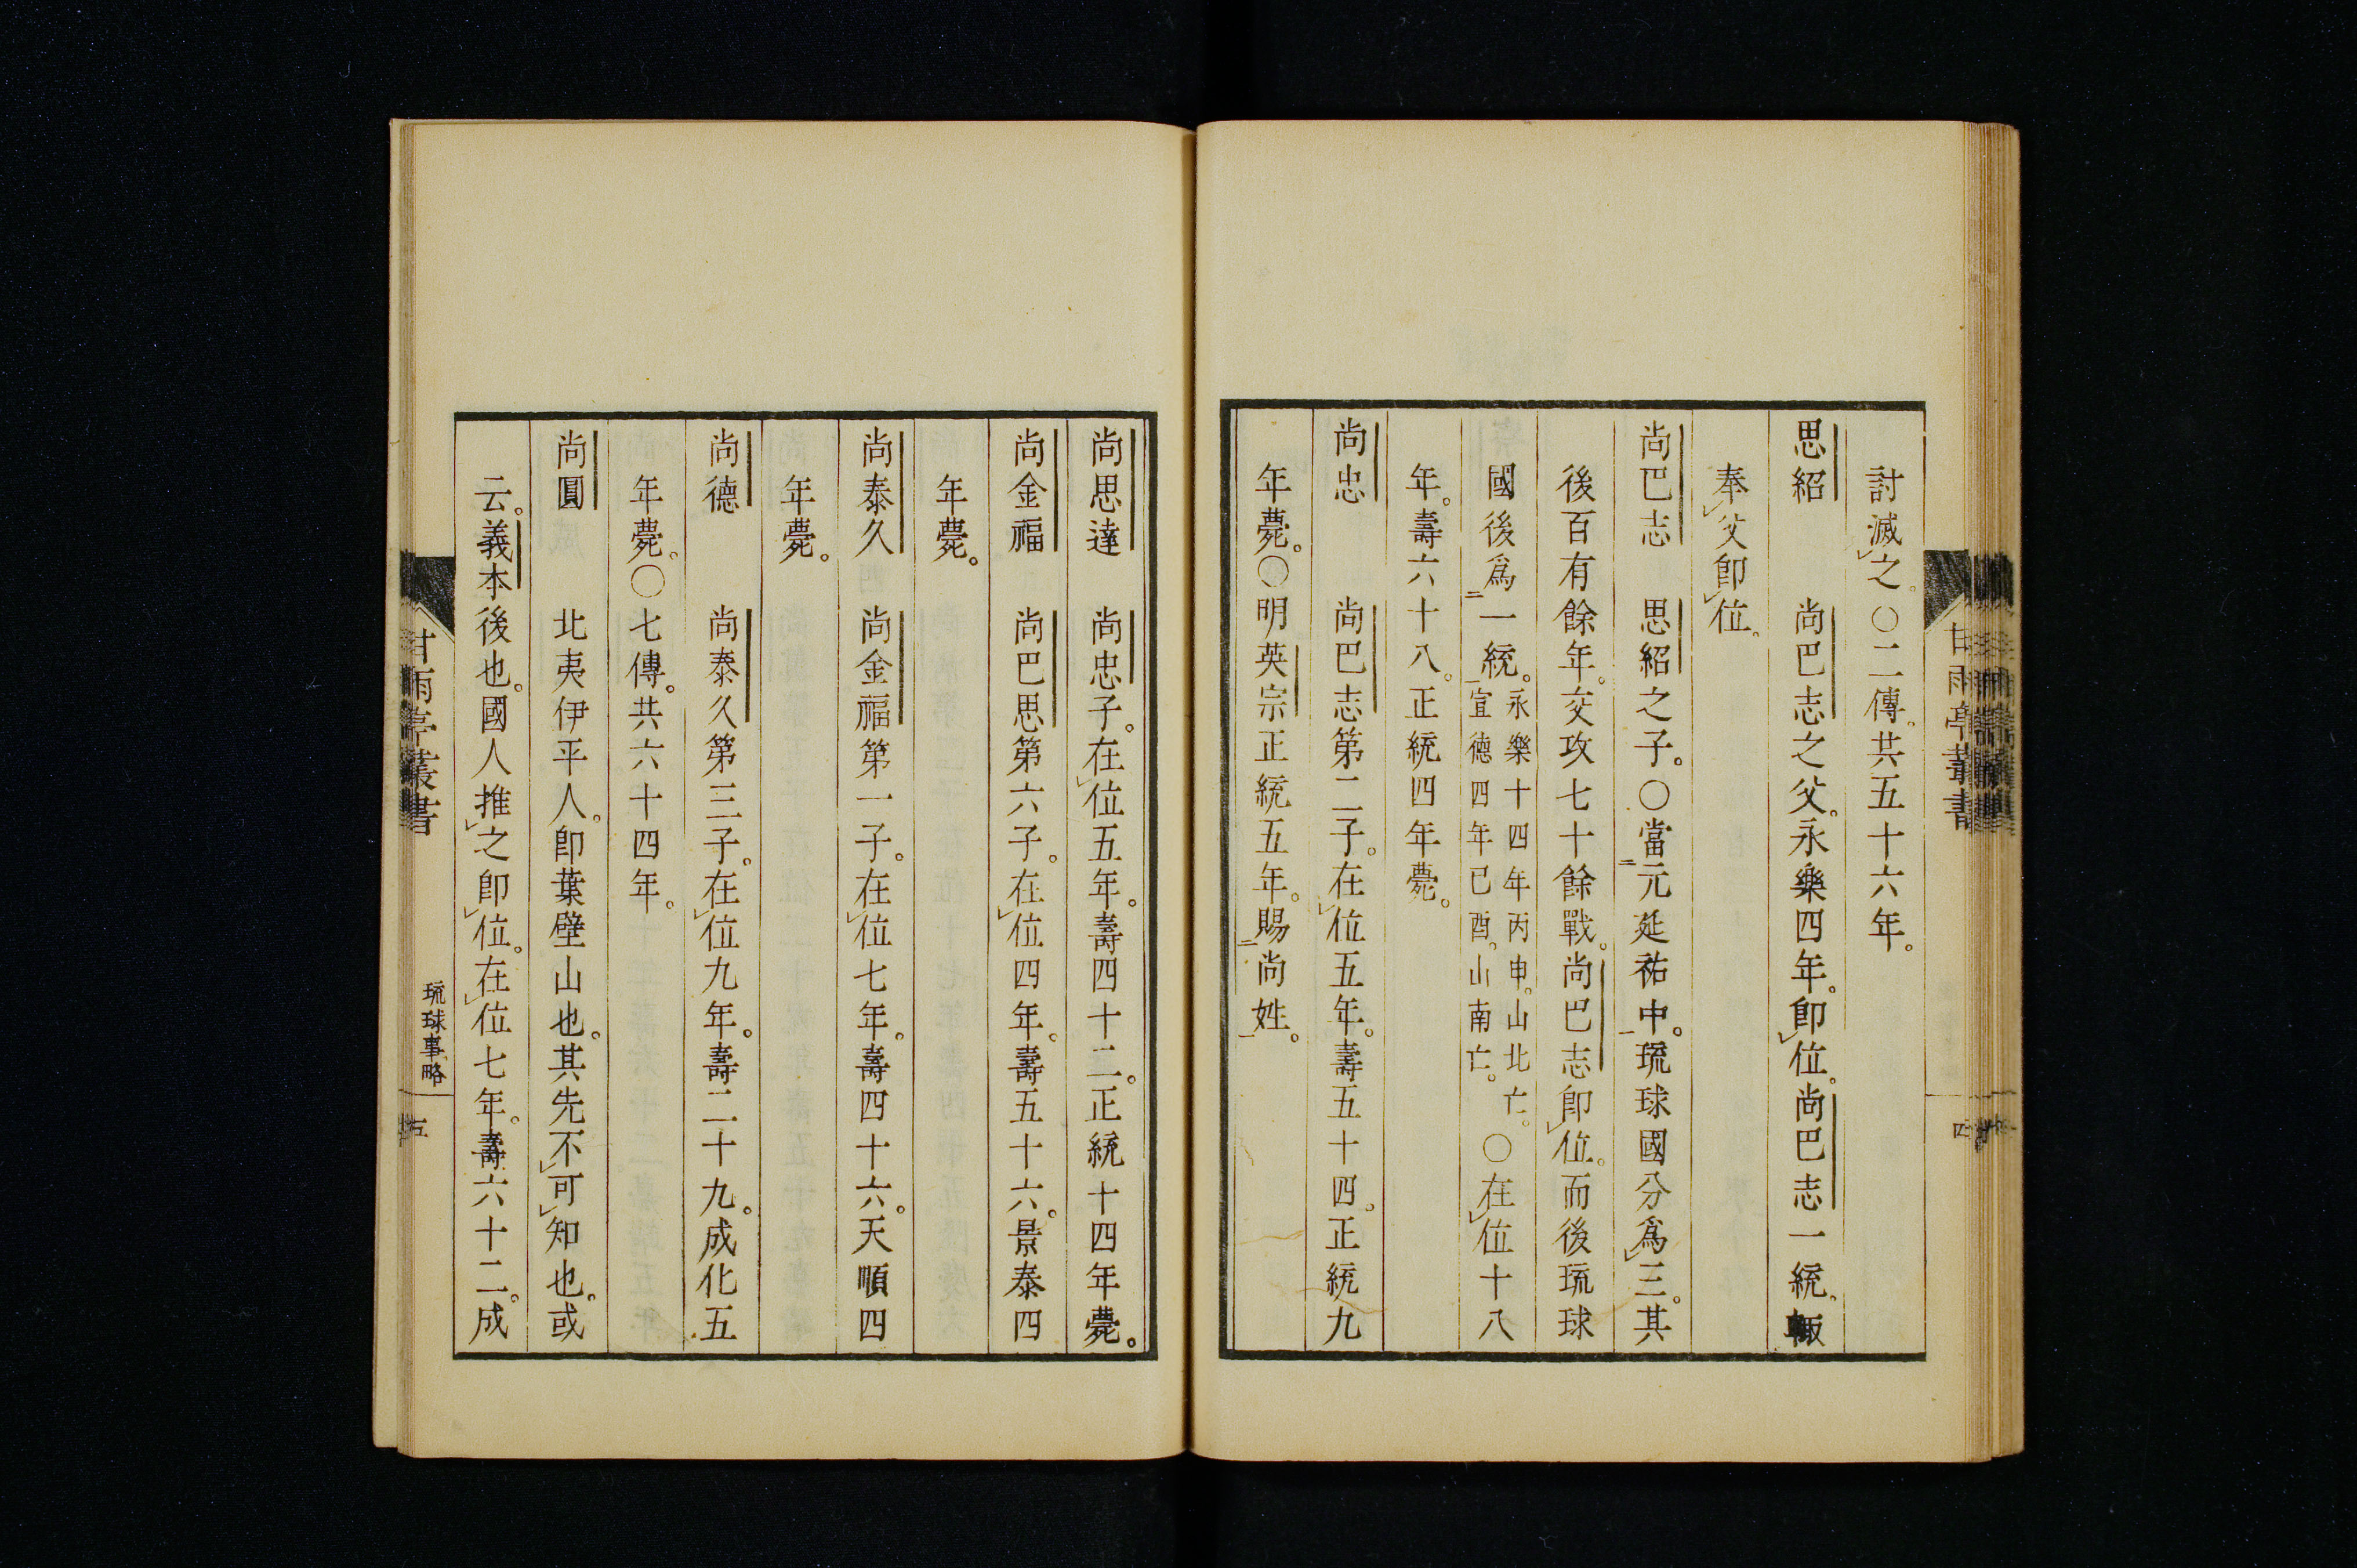 討滅之。○二傳。共五十六年。
思紹　尚巴志之父。永樂四年。卽位。尚巴志一統。輙
奉父卽位。
尚巴志　思紹之子。○當元延祐中。琉球國分爲三。其
後百有餘年。交攻七十餘戰。尚巴志卽位。而後琉球
國後爲一統。永樂十四年丙申。山北亡。宣德四年己酉。山南亡。○在位十八
年。壽六十八。正統四年薨。
尚忠　尚巴志第二子。在位五年。壽五十四。正統九
年薨。○明英宗正統五年。賜尚姓。
甘雨亭叢書
四
尚思達　尚忠子。在位五年。壽四十二。正統十四年薨。
尚金福　尚巴思第六子。在位四年。壽五十六。景泰四
年薨。
尚泰久　尚金福第一子。在位七年。壽四十六。天順四
年薨。
尚德　尚泰久第三子。在位九年。壽二十九。成化五
年薨。○七傳。共六十四年。
尚圓　北夷伊平人。卽葉壁山也。其先不可知也。或
云。義本後也。國人推之卽位。在位七年。壽六十二。成
甘雨亭叢書
琉球事略
五